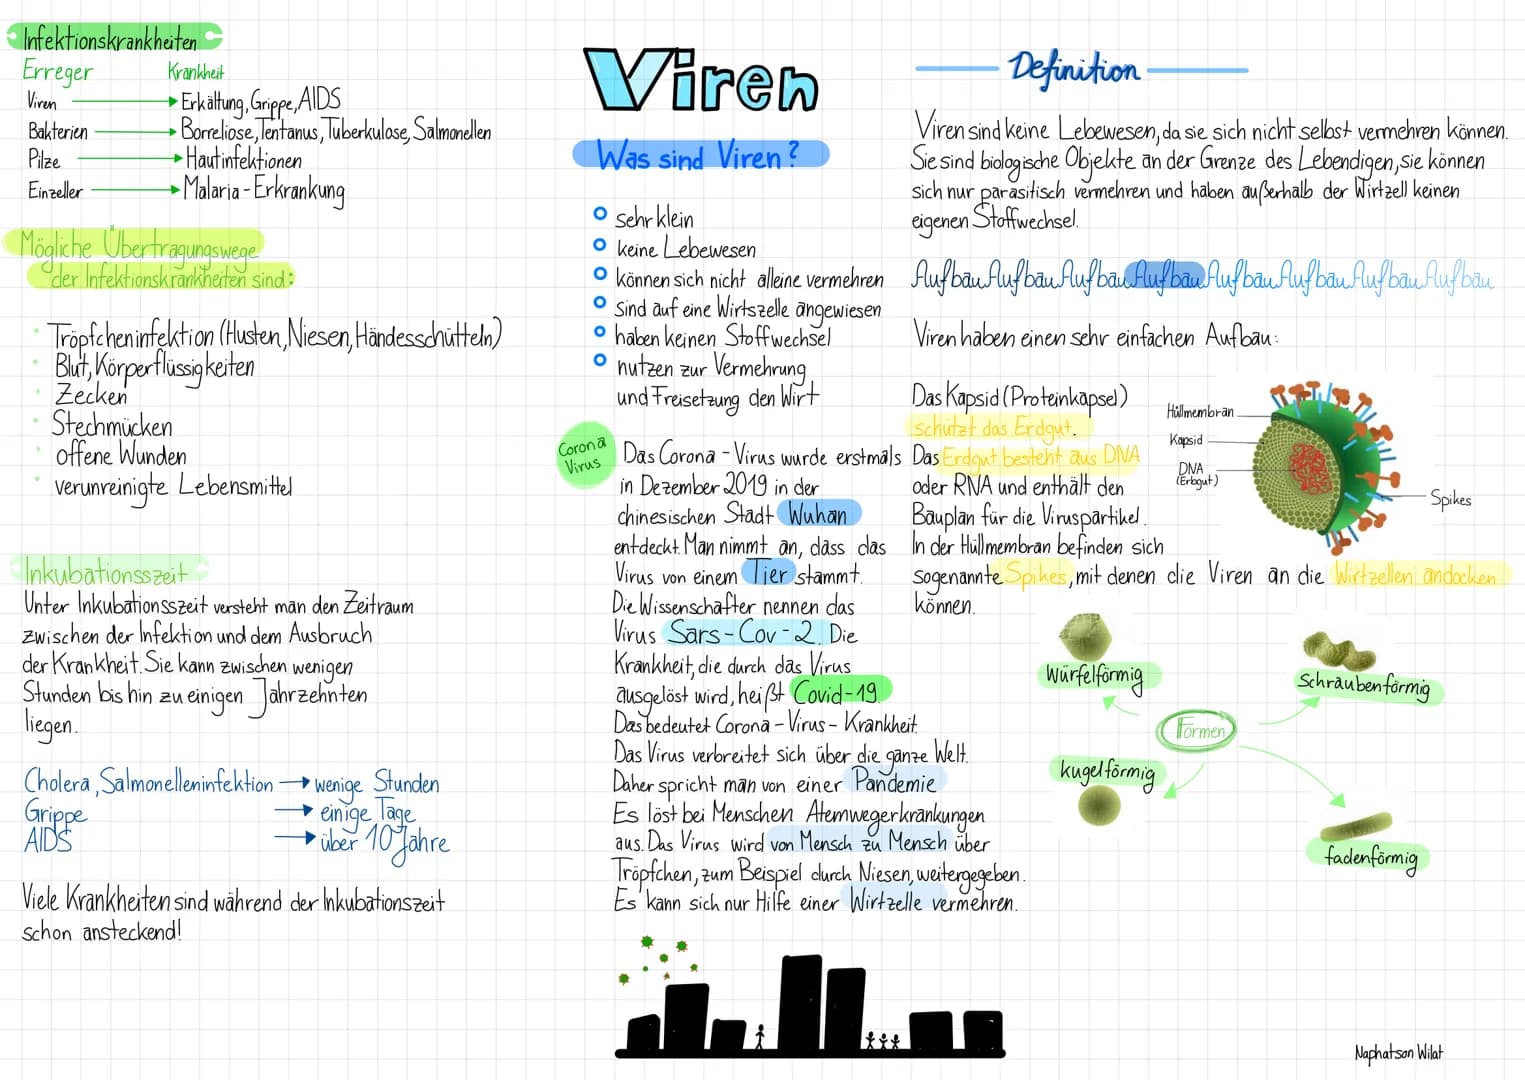 Infektionskrankheiten
Erreger Krankheit
Viren → Erkältung, Grippe, AIDS
Bakterien → Borreliose, Tentanus, Tuberkulose, Salmonellen
Pilze → Hautinfektionen
Einzeller → Malaria-Erkrankung
Mögliche Übertragungswege
der Infektionskrankheiten sind:
Tröpfcheninfektion (Husten, Niesen, Händesschütteln)
Blut, Körperflüssigkeiten
Zecken
Stechmücken
offene Wunden
verunreinigte Lebensmittel
Inkubationsszeit
Unter Inkubationsszeit versteht man den Zeitraum
zwischen der Infektion und dem Ausbruch
der Krankheit. Sie kann zwischen wenigen
Stunden bis hin zu einigen Jahrzehnten
liegen.
Cholera, Salmonelleninfektion → wenige Stunden
Grippe → einige Tage
AIDS → über 10 Jahre
Viele Krankheiten sind während der Inkubationszeit
schon ansteckend!
Viren
Was sind Viren?
sehr klein
keine Lebewesen
können sich nicht alleine vermehren
sind auf eine Wirtszelle angewiesen
haben keinen Stoffwechsel
nutzen zur Vermehrung
und Freisetzung den Wirt
Corona
Virus
Das Corona-Virus wurde erstmals
in Dezember 2019 in der
chinesischen Stadt Wuhan
entdeckt. Man nimmt an, dass das
Virus von einem Tier stammt.
Die Wissenschafter nennen das
Virus Sars-Cov-2. Die
Krankheit, die durch das Virus
ausgelöst wird, heißt Covid-19.
Das bedeutet Corona-Virus-Krankheit.
Das Virus verbreitet sich über die ganze Welt.
Daher spricht man von einer Pandemie
Es löst bei Menschen Atemwegerkrankungen
aus. Das Virus wird von Mensch zu Mensch über
Tröpfchen, zum Beispiel durch Niesen, weitergegeben.
Es kann sich nur Hilfe einer Wirtzelle vermehren.
Definition
Viren sind keine Lebewesen, da sie sich nicht selbst vermehren können.
Sie sind biologische Objekte an der Grenze des Lebendigen, sie können
sich nur parasitisch vermehren und haben außerhalb der Wirtzell keinen
eigenen Stoffwechsel.
Aufbau Aufbau Aufbau Aufbau Aufbau Aufbau Aufbau Aufbau
Viren haben einen sehr einfachen Aufbau:
Das Kapsid (Proteinkapsel)
schützt das Erdgut.
Das Erdgut besteht aus DNA
oder RNA und enthält den
Bauplan für die Viruspartikel.
In der Hüllmembran befinden sich
sogenannte Spikes, mit denen die Viren an die Wirtzellen andocken
können.
Hüllmembran
Kapsid
DNA
(Erbgut)
Spikes
Würfelförmig
Schraubenförmig
Formen
kugelförmig
fadenförmig
Naphatson Wilat